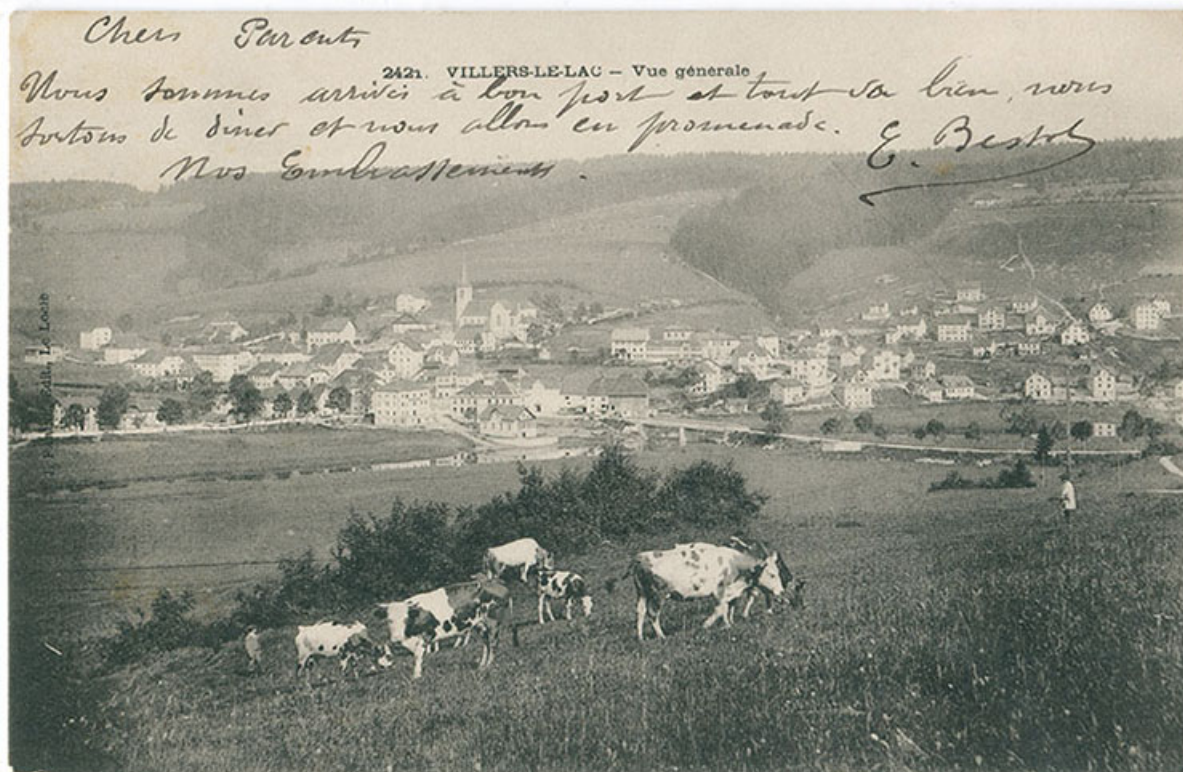 Chers Parents
2421. VILLERS-LE-LAC – Vue générale
Nous sommes arrivés à bon port et tout va bien, nous
sortons de diner et nous allons en promenade.
E. Bestol
Nos Embrassements.
Le Locle